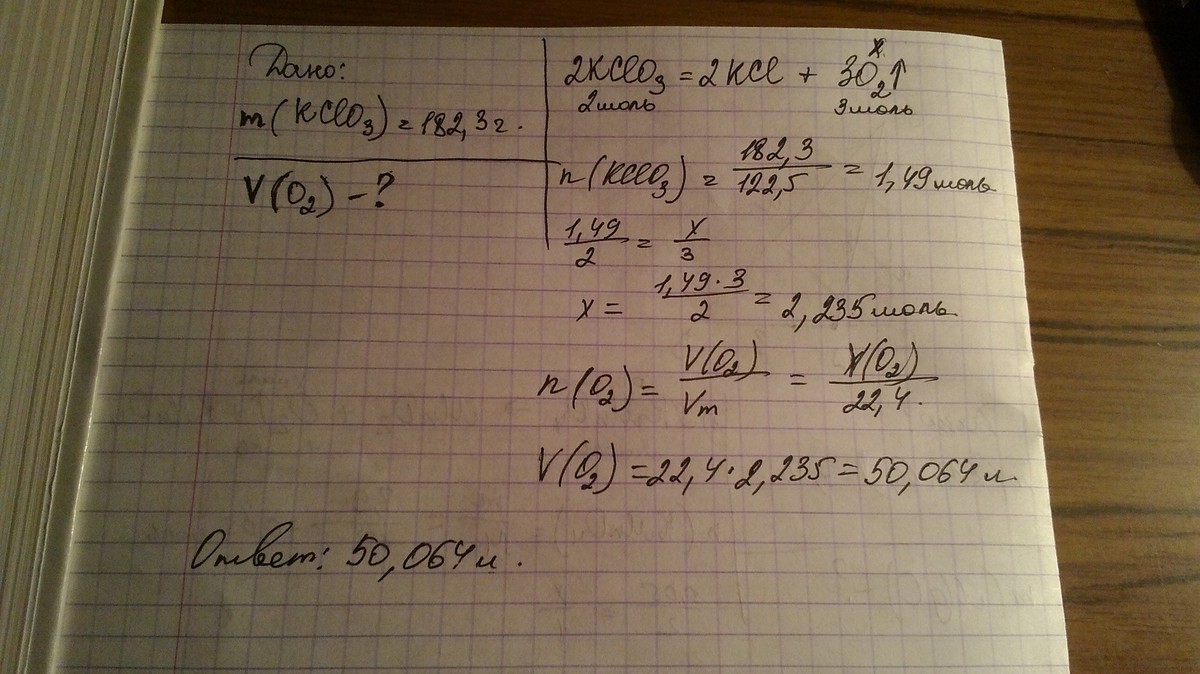 Дано:
m(KClO₃) = 182,3 г.
V(O₂) – ?
x
2KClO₃ = 2KCl + 3O₂↑
2 моль 3 моль
n(KClO₃) = 182,3 / 122,5 = 1,49 моль
1,49 / 2 = x / 3
x = 1,49 · 3 / 2 = 2,235 моль
n(O₂) = V(O₂) / Vm = V(O₂) / 22,4.
V(O₂) = 22,4 · 2,235 = 50,064 л.
Ответ: 50,064 л.